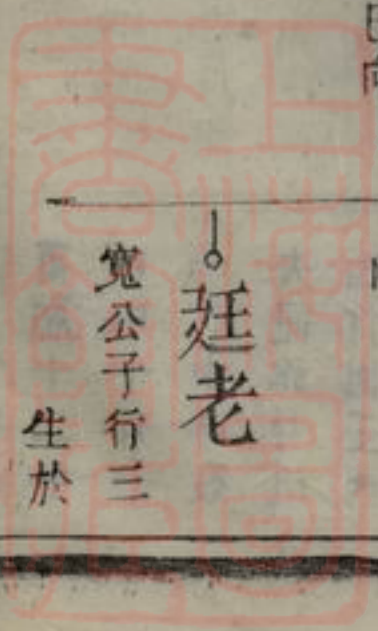 廷老
寬公子行三
生於